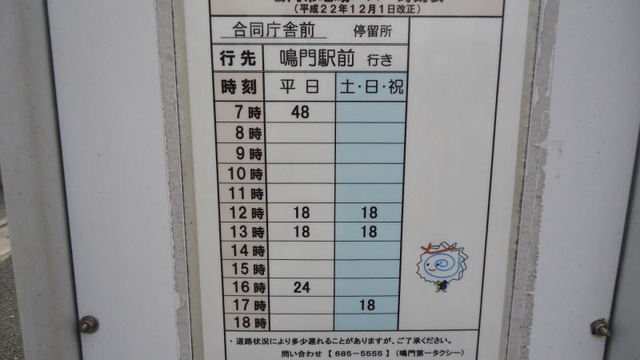 (平成22年12月1日改正)
合同庁舎前 停留所
行先 鳴門駅前 行き
時刻 平日 土・日・祝
7時 48
8時
9時
10時
11時
12時 18 18
13時 18 18
14時
15時
16時 24
17時 18
18時
・道路状況により多少遅れることがありますが、ご了承ください。
問い合わせ【685-5555】(鳴門第一タクシー)